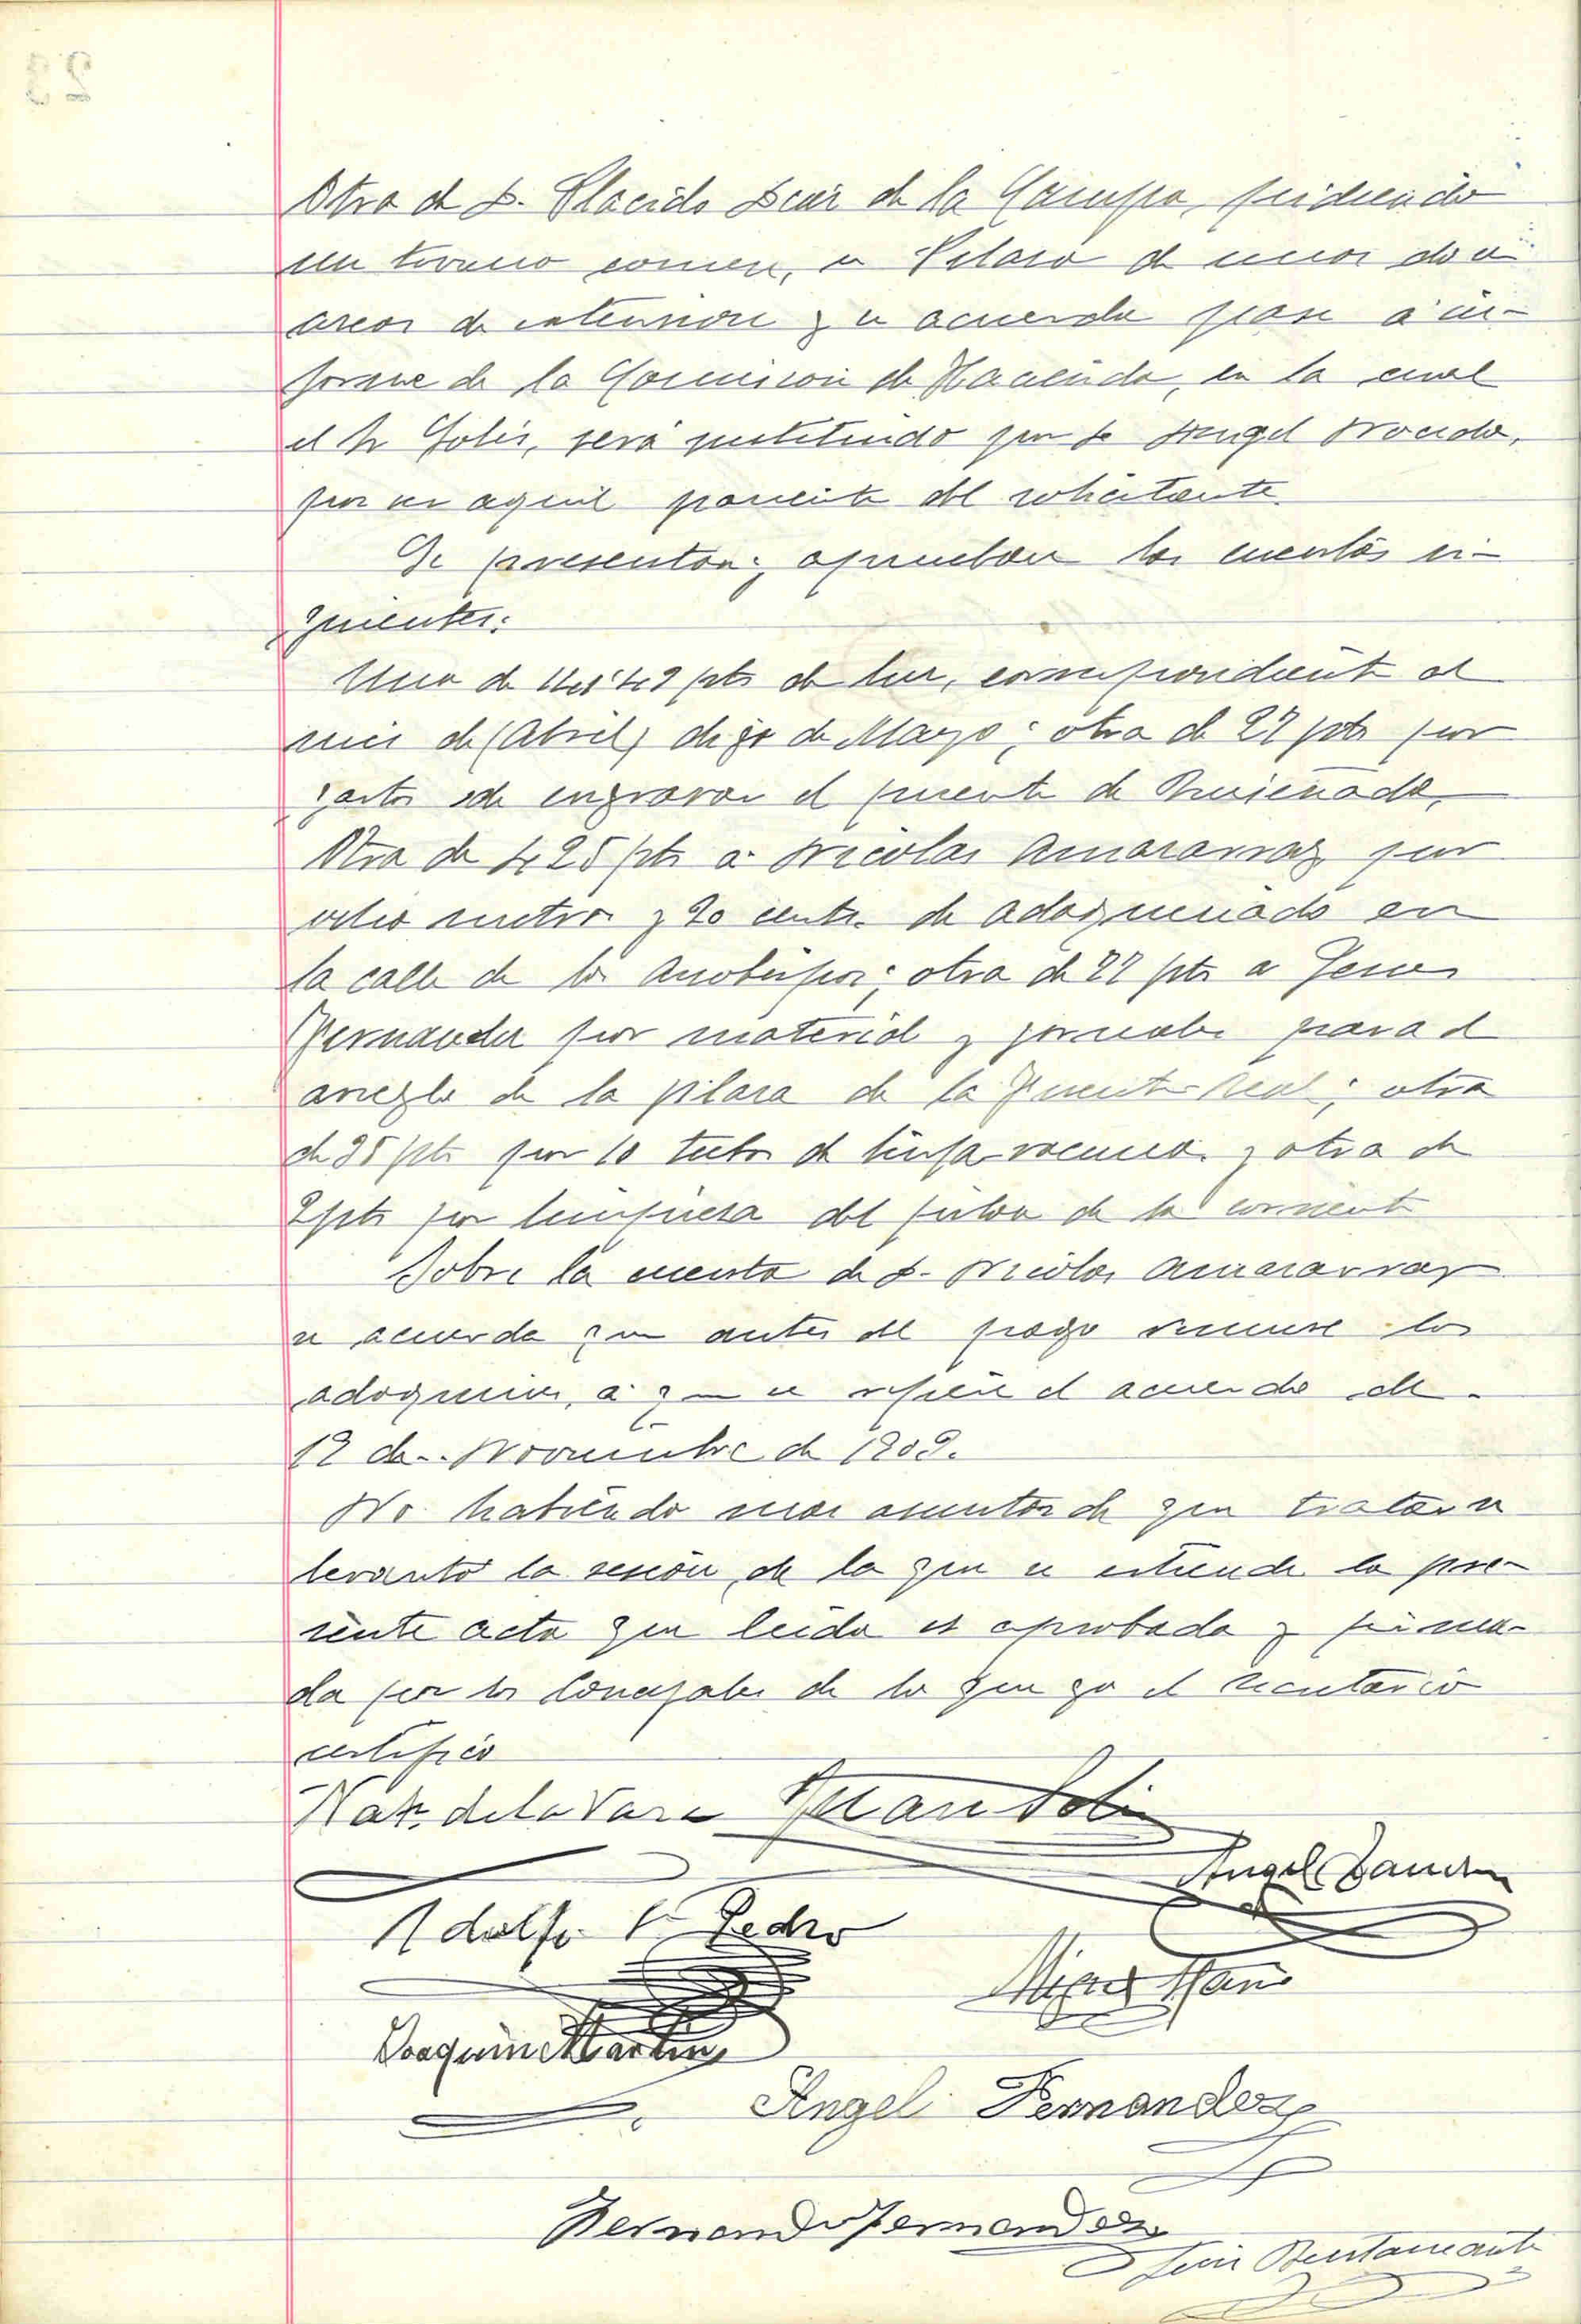 Otra de D. Placido Diaz de la Campa, pidiendo
un terreno comun, a Pilara de unas dos
areas de extension y se acuerda pase a in-
forme de la Comision de Hacienda, en la cual
el Sr Solis, será sustituido por D. Angel
por ser aquel pariente del solicitante
Se presentan y aprueban las cuentas si-
guientes:
Una de pts de luz, correspondiente al
mes de (Abril) digo de Mayo; otra de 27 pts por
gastos de engravar el puente de
Otra de 425 pts a Nicolas Amararraz por
ocho metros y 20 cents. de adoquinado en
la calle de los Arrobispos; otra de 27 pts a Jesus
Fernandez por material y jornales para el
arreglo de la pilara de la Fuente Real; otra
de 25 pts por 10 tubos de linfa vacuna y otra de
2 pts por limpieza del pilon de la corriente
Sobre la cuenta de D. Nicolas Amararraz
se acuerda que antes del pago los
adoquines, a que se refiere el acuerdo del
12 de Noviembre de 1909.
No habiendo mas asuntos de que tratar se
levantó la sesión, de la que se estiende la pre-
sente acta que leida es aprobada y firma-
da por los Concejales de lo que yo el secretario
certifico
Nat. de la Vara Juan Solis
Angel
Adolfo F. Pedro
Joaquin Martin
Angel Fernandez
Bernardo Fernandez
Luis Bustamante